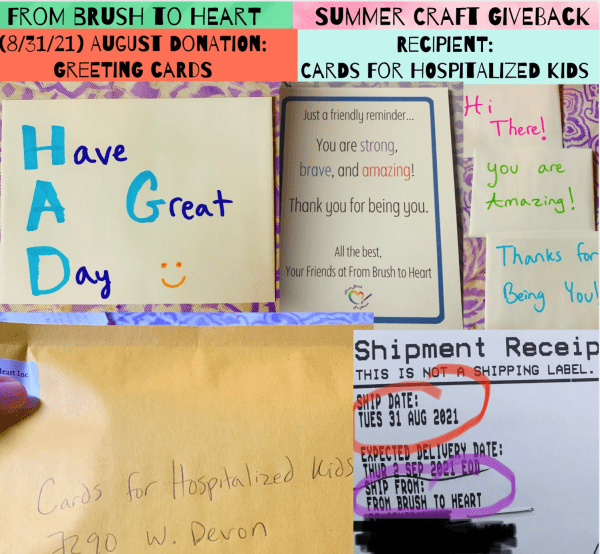 FROM BRUSH TO HEART
SUMMER CRAFT GIVEBACK
(8/31/21) AUGUST DONATION:
GREETING CARDS
RECIPIENT:
CARDS FOR HOSPITALIZED KIDS
Have
A Great
Day
Just a friendly reminder...
You are strong,
brave, and amazing!
Thank you for being you.
All the best,
Your Friends at From Brush to Heart
Hi
There!
you are
Amazing!
Thanks for
Being You!
Heart Inc.
Cards for Hospitalized Kids
7290 W. Devon
Shipment Receip
THIS IS NOT A SHIPPING LABEL.
SHIP DATE:
TUES 31 AUG 2021
EXPECTED DELIVERY DATE:
THUR 2 SEP 2021 EOD
SHIP FROM:
FROM BRUSH TO HEART